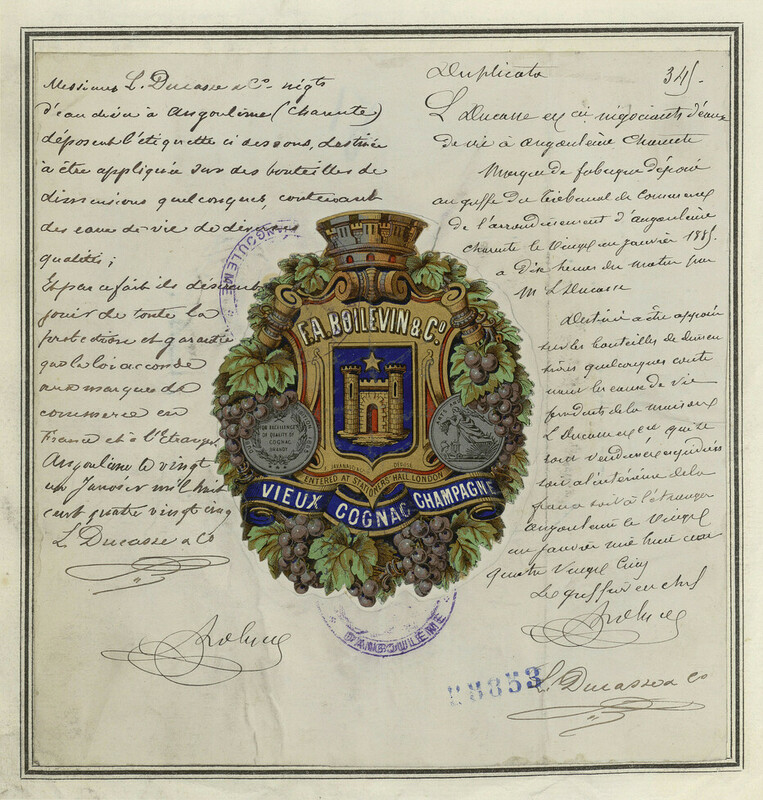 Messieurs L. Ducasse & Co. négts
d'eau de vie à Angoulême (Charente)
déposent l'étiquette ci dessous, destinée
à être appliquée sur des bouteilles de
dimensions quelconques, contenant
des eaux de vie de diverses
qualités;
Et par ce fait ils désirent
jouir de toute la
protection et garantie
que la loi accorde
aux marques de
commerce en
France et à l'Etranger
Angoulême le vingt
un Janvier mil huit
cent quatre vingt cinq
L. Ducasse & Co
Duplicata 345.
L Ducasse et cie négociants d'eaux
de vie à angoulême charente
Marque de fabrique déposée
au greffe du Tribunal de Commerce
de l'arrondissement d'angoulême
charente le vingt un janvier 1885.
a dix heures du matin par
M L Ducasse
Destinée a être apposée
sur les bouteilles de dimen
sions quelconques conte
nant les eaux de vie
produits de la maison
L Ducasse et cie qu'ils
soit vendus et expédiés
soit a l'intérieur de la
france soit à l'étranger
angoulême le vingt
un janvier mil huit cent
quatre vingt cinq
Le greffier en chef
L. Ducasse & Co
F.A. BOILEVIN & Co
FOR EXCELLENCE
OF QUALITY OF
COGNAC
BRANDY
DÉPOSÉ
ENTERED AT STATIONERS' HALL, LONDON
VIEUX COGNAC CHAMPAGNE
ANGOULEME
D'ANGOULÊME
8853